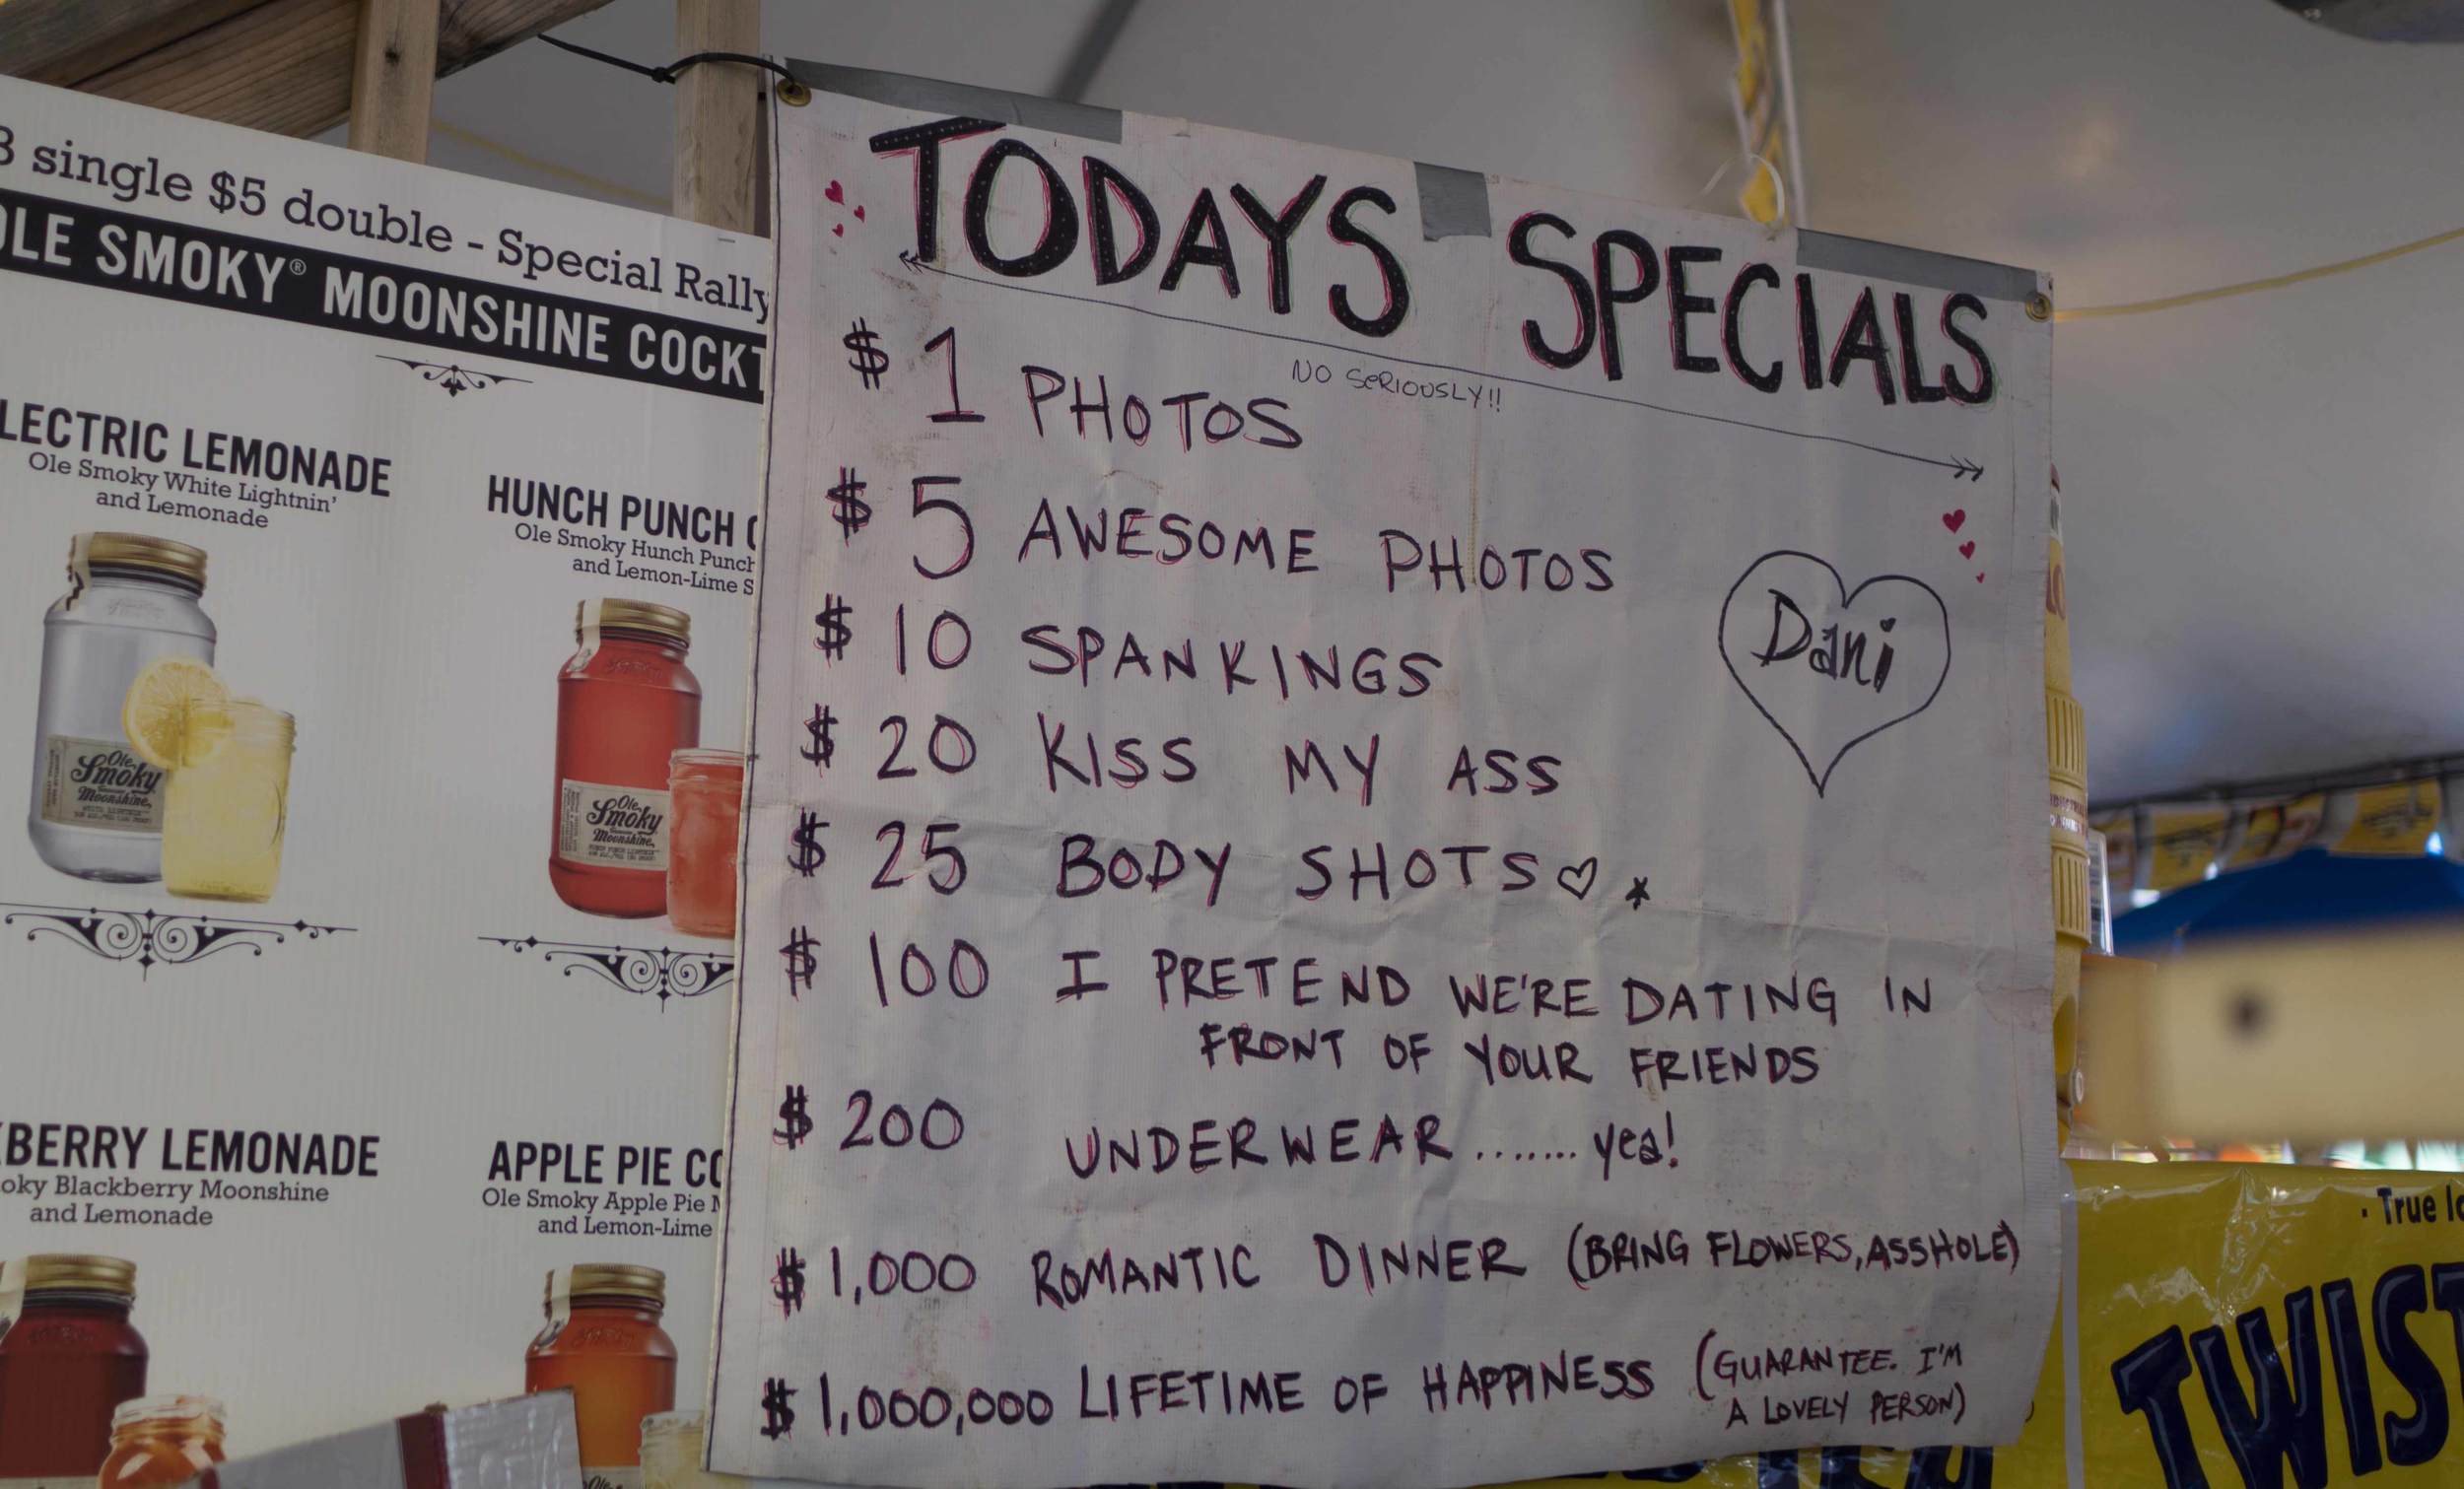 single $5 double - Special Rally
SMOKY® MOONSHINE
LEMONADE
Ole Smoky White Lightnin'
and Lemonade
HUNCH PUNCH
Ole Smoky Hunch Punch
and Lemon-Lime
Ole
Smoky
Moonshine
Ole
Smoky
Moonshine
LEMONADE
Blackberry Moonshine
and Lemonade
APPLE PIE
Ole Smoky Apple Pie
and Lemon-Lime
TODAYS SPECIALS
NO SERIOUSLY!!
$ 1 PHOTOS
$ 5 AWESOME PHOTOS
Dani
$ 10 SPANKINGS
$ 20 KISS MY ASS
$ 25 BODY SHOTS♡ *
$ 100 I PRETEND WE'RE DATING IN
FRONT OF YOUR FRIENDS
$ 200 UNDERWEAR....... yea!
$ 1,000 ROMANTIC DINNER (BRING FLOWERS, ASSHOLE)
$ 1,000,000 LIFETIME OF HAPPINESS (GUARANTEE. I'M
A LOVELY PERSON)
· True
TWIST